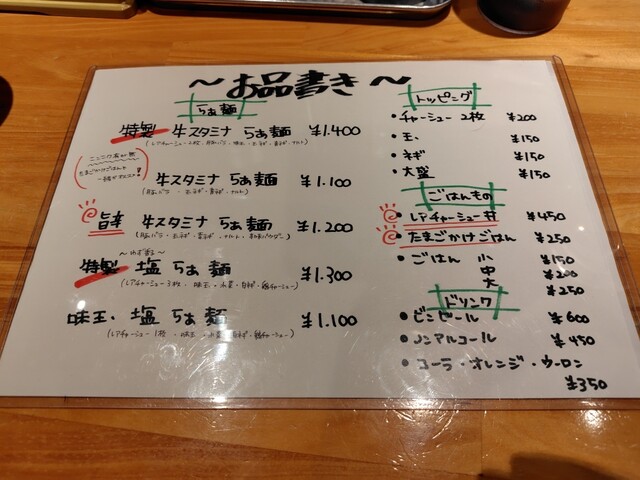 〜お品書き〜
らぁ麺
特製 牛スタミナ らぁ麺 ¥1.400
牛スタミナ らぁ麺 ¥1.100
旨辛 牛スタミナ らぁ麺 ¥1.200
特製 塩 らぁ麺 ¥1.300
(レアチャーシュー3枚・味玉・水菜・白ネギ・鶏チャーシュー)
味玉 塩 らぁ麺 ¥1.100
トッピング
・チャーシュー 2枚 ¥200
・玉 ¥150
・ネギ ¥150
・大盛 ¥150
ごはんもの
・レアチャーシュー丼 ¥450
・たまごかけごはん ¥250
・ごはん 小 ¥150
中 ¥200
大 ¥250
ドリンク
・ビンビール ¥600
・ノンアルコール ¥450
・コーラ・オレンジ・ウーロン
¥350